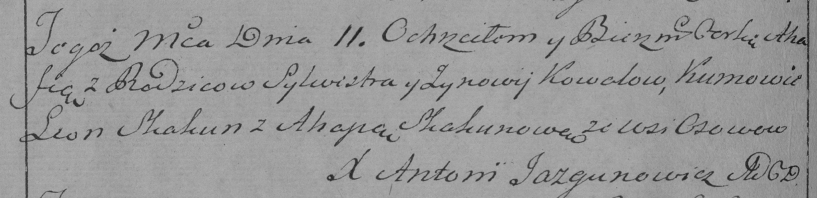 Tegoż Mca Dnia 11. Ochrzciłem y Bierzm: Corkę Aha
fię z Rodzicow Sylwistra y Zynowij Kowalow, Kumowie
Leon Skakun z Ahapą Skakunową ze wsi Osowow
X Antoni Jazgunowicz